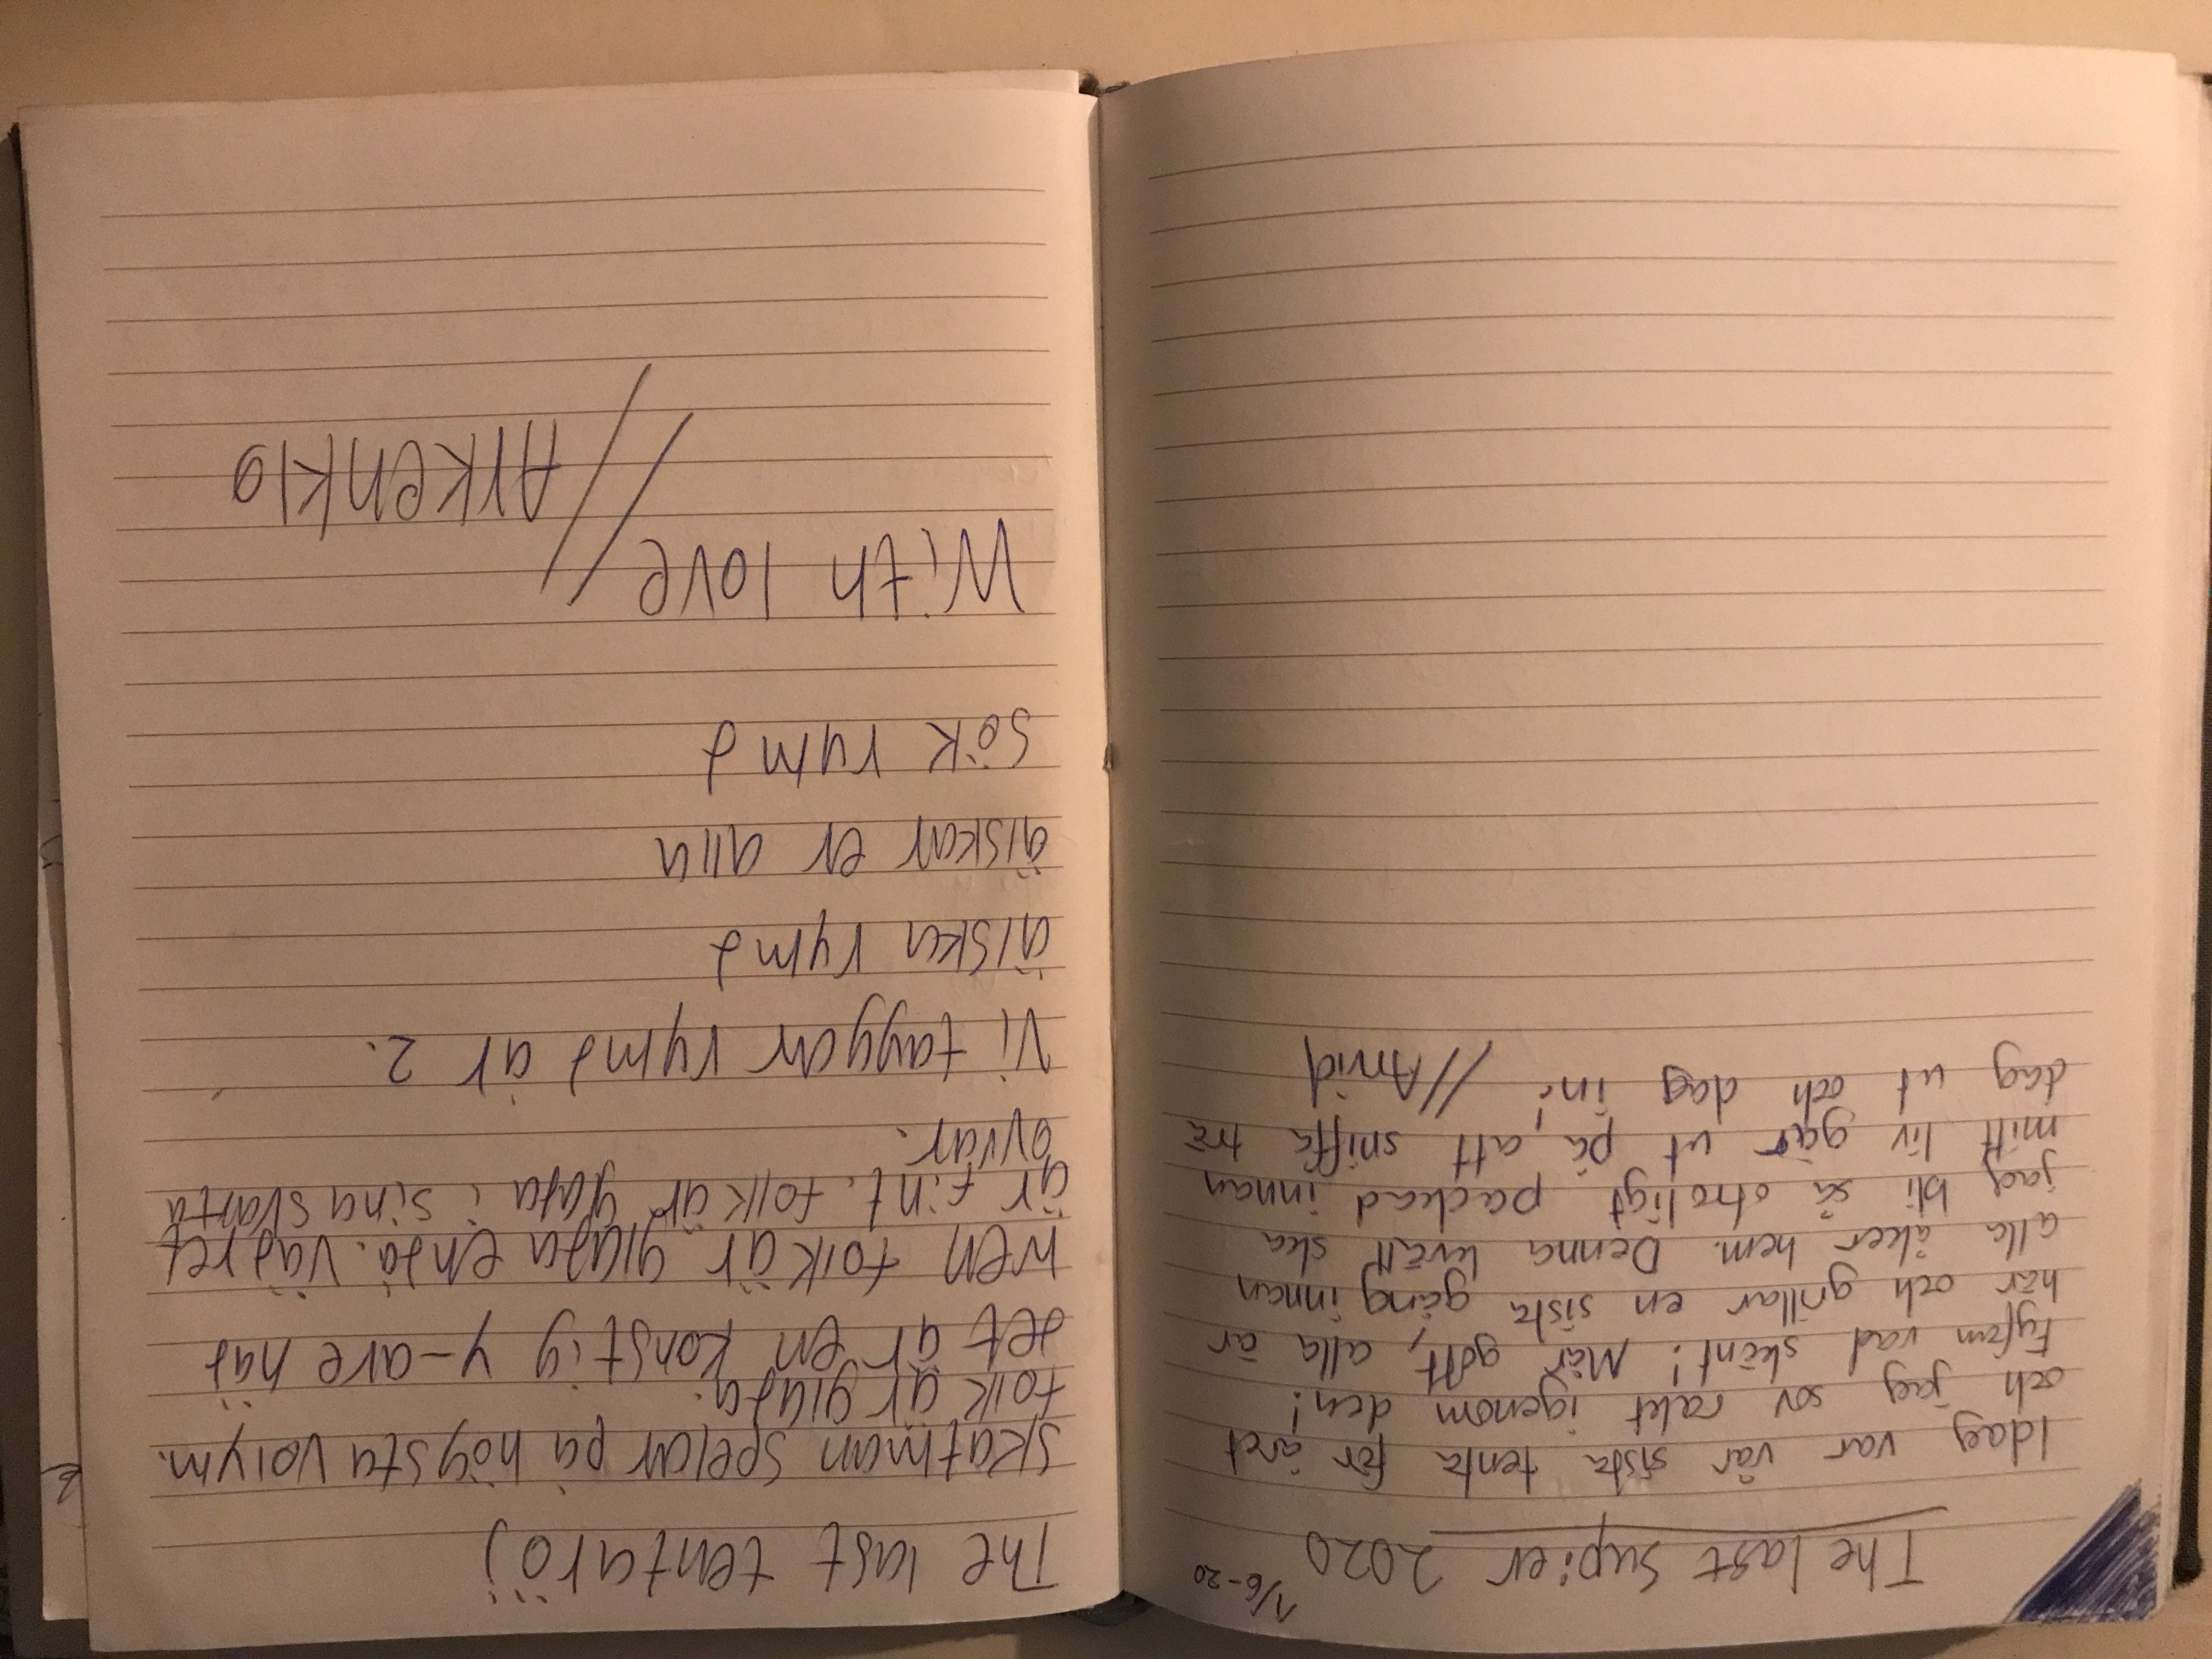 The last supier 2020
1/6-20
Idag var vår sista tenta för året
och jag sov rakt igenom den!
Fyfan vad skönt! Mår gott, alla är
här och grillar en sista gång innan
alla åker hem. Denna kväll ska
jag bli så otroligt packad innan
mitt liv går ut på att sniffa trä
dag ut och dag in! //Arvid
The last tentaröj
skatman spelar på högsta volym.
folk är glada.
det är en konstig y-are här
men folk är glada ändå. vädret
är fint. folk är glada i sina svarta
ovvar.
Vi taggar rymd år 2.
älska rymd
älskar er alla
sök rymd
With love
//Arkenklo